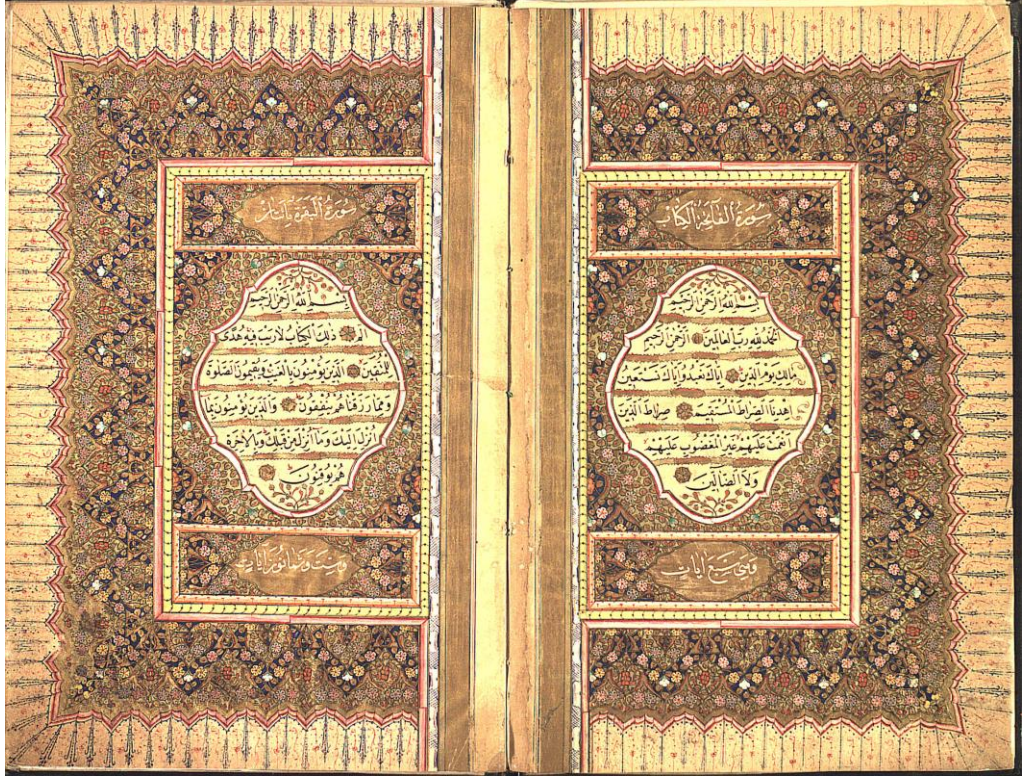 سورة الفاتحة الكتاب
بسم الله الرحمن الرحيم
الحمد لله رب العالمين الرحمن الرحيم
مالك يوم الدين اياك نعبد واياك نستعين
اهدنا الصراط المستقيم صراط الذين
انعمت عليهم غير المغضوب عليهم
ولا الضالين
وهي سبع ايات
سورة البقرة مائتان
بسم الله الرحمن الرحيم
الم ذلك الكتاب لا ريب فيه هدى
للمتقين الذين يؤمنون بالغيب ويقيمون الصلوة
ومما رزقناهم ينفقون والذين يؤمنون بما
انزل اليك وما انزل من قبلك وبالاخرة
هم يوقنون
وست وثمانون ايات